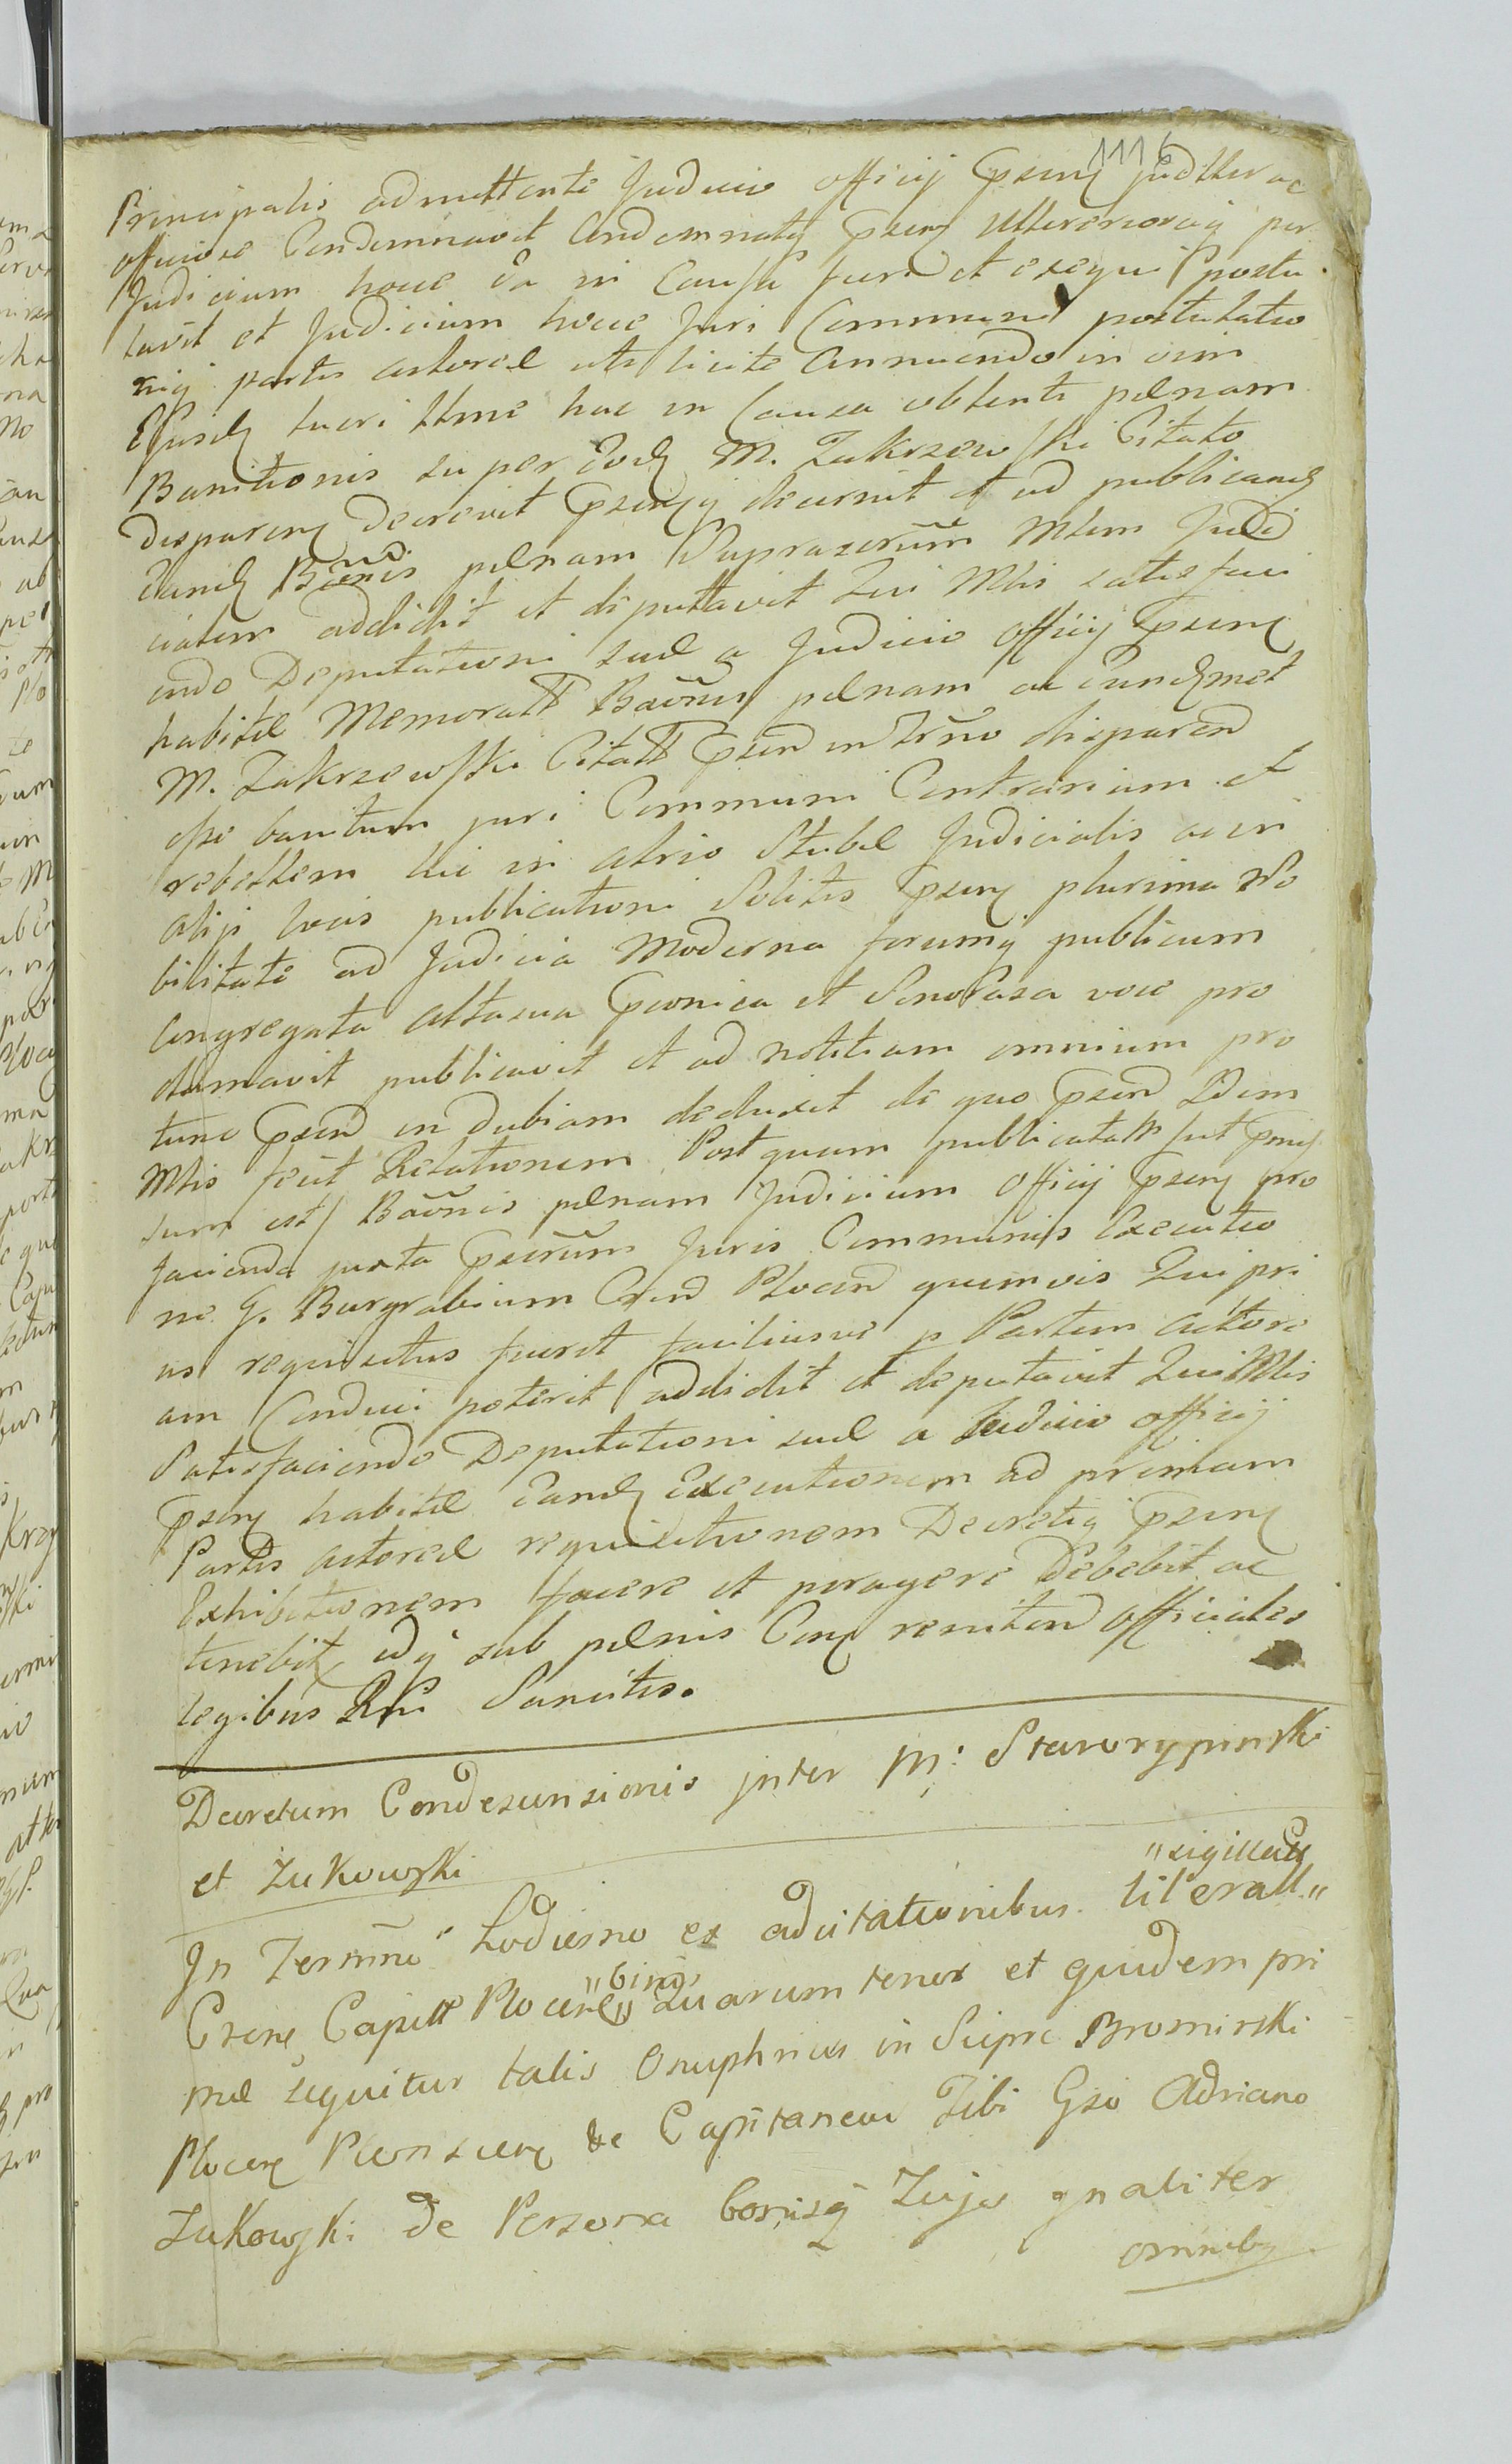 1116
Principalis admittente Judicio officij pseng Judtter ac
officiose Condemnavit Condemnatq pseng Ulterioreq per
Judicium hocce Ea in Causa fieri et exequi postu
lavit et Judicium hocce Juri Communi postulatio
niq partis actoreæ uti licite Annuendo in vim
Ejusdq lucri ttme hac in Causa obtenti pænam
Bannitionis super Eodq M. Zakrzewski Citato
disparenq Decrevit pseng decernit et ad publicandq
Eandq Bannis pænam Suprascrum Mlem Judi
cialem addidit et deputavit Qui Mlis satisfaci
endo Deputationi suæ a Judicio officij pseng
habitæ Memoratt Banis pænam ac Eundqmet
M. Zakrzewski Citatt psen in trno disparen
esse banitum juri Communi Contrarium et
rebellem hic in atrio Stubæ Judicialis ac in
alijs locis publicationi Solitis pseng plurima No
bilitate ad Judicia Moderna forumq publicum
Congregata alta sua pconica et Sonorosa voce pro
clamavit publicavit et ad notitiam omnium pro
tunc psen indubiam deduxit de quo psen Idem
Mlis fecit Relationem Postquam publicatam ut pmis
sum est Bannis pænam Judicium Officij pseng pro
facienda juxta pscrum Juris Communis Executio
ne G. Burgrabium Cren Plocen quemvis Qui pri
us requisitus fuerit faciliusve p Partem actore
am Conduci poterit addidit et deputavit Qui Mlis
Satisfaciendo Deputationi suæ a Judicio officij
pseng habitæ Eandq Executionem ad primam
Partis actoreæ requisitionem Decretiq pseng
Exhibitionem facere et peragere Debebit ac
tenebitq idq sub pænis Conq reniten officiales
legibus Rni Sancitis.
Decretum Condescensionis jnter M: Staworypinski
et Zukowski
"sigillatt
Jn Termno hodierno ex adcitationibus literall "
Csene Capitt Plocene "binis" Quarum tenor et quidem pri
mæ sequitur talis Onuphrius in Siepre Bromirski
Plocenq Plonscenq &e Capitaneus Tibi Gso Adriano
Zukowski de Persona bonisq Tuis gnaliter
omnibq